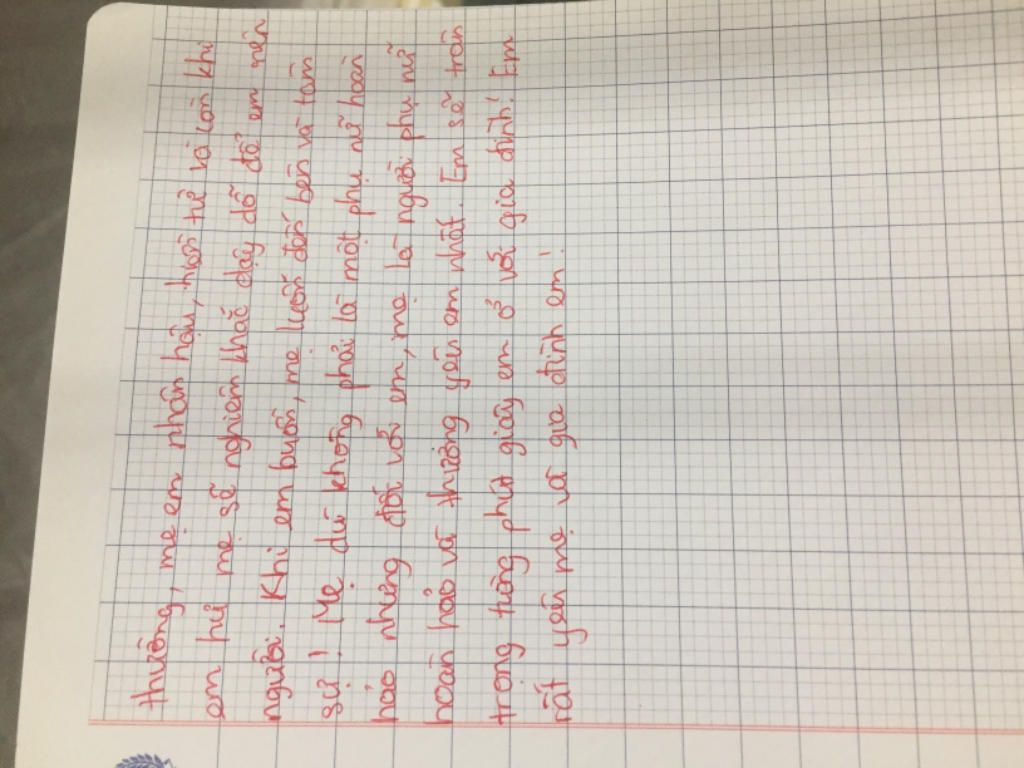 thường, mẹ em nhân hậu, hiền từ và còn khi
em hư mẹ sẽ nghiêm khắc dạy dỗ để em nên
người. Khi em buồn, mẹ luôn đến bên và tâm
sự! Mẹ dù không phải là một phụ nữ hoàn
hảo nhưng đối với em, mẹ là người phụ nữ
hoàn hảo và thương yêu em nhất. Em sẽ trân
trọng từng phút giây em ở với gia đình! Em
rất yêu mẹ và gia đình em!